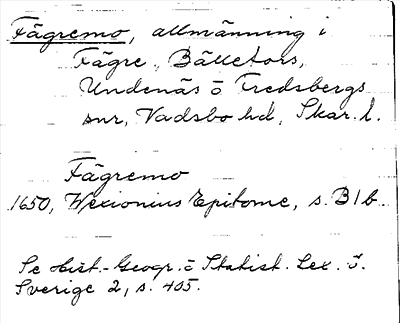 Fägremo, allmänning i
Fägre, Bällefors,
Undenäs o Fredsbergs
snr, Vadsbo hd, Skar. l.
Fägremo
1650, Wexionius Epitome, s. B1b.
Se Hist.-Geogr. o Statist. Lex. ö.
Sverige 2, s. 405.